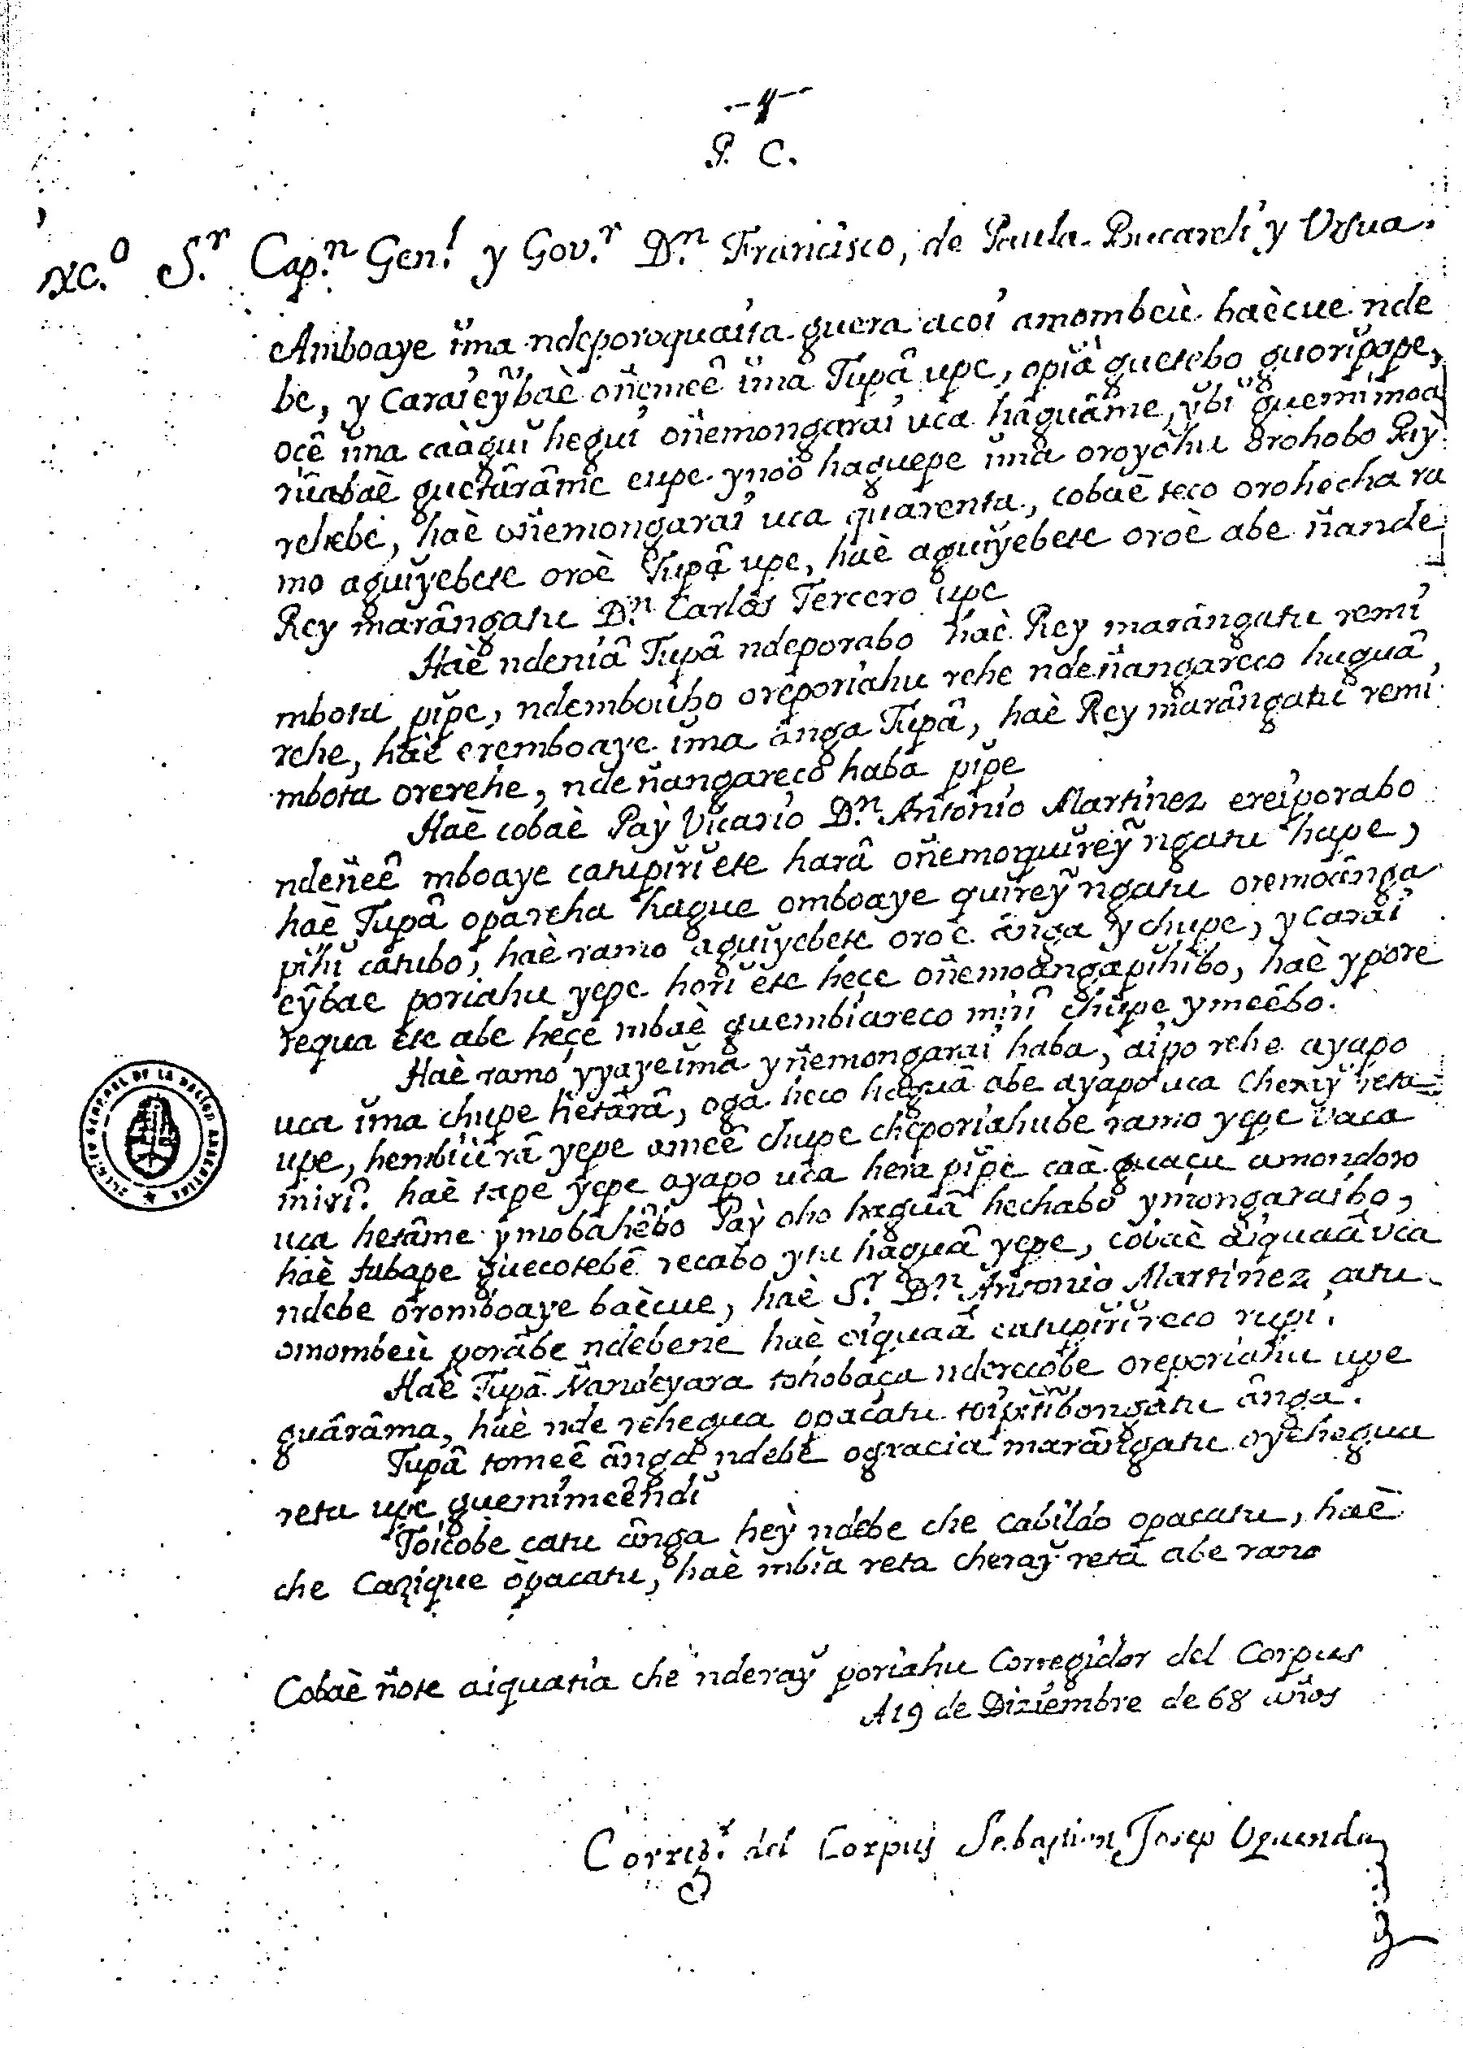 P. C.
xc.º S.r Cap.n Gen.l y Gov.r D.n Francisco, de Paula Bucareli y Ursua.
Amboaye ĭma ndeporoquaita guera acoi amombeù baècue nde
be, y Caraieỹbaè oñemeê ĭma Tupâ upe, opĭà guetebo guorĭpape,
ocê ĭma caàguĭ hegui oñemongarai uca hâguâme, ỹbĭ guemimoa
rûabaè guetârâmê eupe ynoô haguepe ĭma oroyohu orohobo Paỳ
rehebe, haè oñemongarai uca quarenta, cobaè teco orohecha ra
mo aguĭyebete oroè Tupâ upe, haè aguĭyebete oroè abe ñande
Rey marângatu D.n Carlos Tercero upe
Haè ndeniâ Tupâ ndeporabo haè Rey marângatu remi
mbota pĭpe, ndemboubo oreporiahu rehe ndeñangareco haguâ
rehe, haè eremboaye ĭma ânga Tupâ, haè Rey marângatu remi
mbota orerehe, ndeñangareco haba pĭpe
Haè cobaè Paỳ Vicario D.n Antonio Martinez ereiporabo
ndeñeê mboaye catupĭrĭ ete harâ oñemoquĭreỹngatu hape,
haè Tupâ opareha hague omboaye quĭreỹngatu oremoânga
pĭhĭ catubo, haè ramo aguĭyebete oroè ânga ychupe, y Carai
eỹbae poriahu yepe horĭ ete hece oñemoângapĭhĭbo, haè ypore
requa ete abe hece mbaè guembiareco mirî chupe ymeêbo.
Haè ramo yyayeima yñemongarai haba, aipo rehe ayapo
uca ĭma chupe hetârâ, oga heco haguâ abe ayapo uca cheraỹ reta
upe, hembiù râ yepe ameê chupe cheporiahube ramo yepe vaca
mirî. haè tape yepe ayapo uca hera pĭpe caà guaçu amondoro
uca hetâme ymobahêbo Paỳ oho haguâ hechabo ymongaraibo,
haè tubape guecotebê recabo ytu haguâ yepe, cobaè aiquaâ uca
ndebe oromboaye baècue, haè S.r D.n Antonio Martinez catu
omombeù porâbe ndebene haè oiquaâ catupĭrĭ reco rupi.
Haè Tupâ Ñandeyara tohobaça nderecobe oreporiahu upe
guârâma, haè nde rehegua opacatu toipĭtĭbongatu ânga.
Tupâ tomeê ânga ndebe ogracia marângatu oyehegua
reta upe guemimeêndĭ
Toicobe catu ânga heỳ ndebe che cabildo opacatu, haè
che Cazique opacatu, haè mbia reta cheraỹ retâ abe ramo
Cobaè ñote aiquatia che nderaỹ poriahu Corregidor del Corpus
A 19 de Diziembre de 68 años
Correg.r del Corpus Sebastian Josep